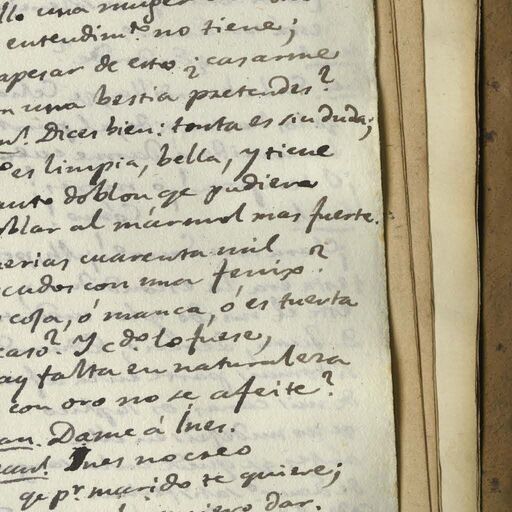 una muger
entendim.to no tiene;
apesar de esto ¿casarme
una bestia pretendes?
Dices bien: tonta es sin duda;
es limpia, bella, y tiene
doblon qe pudiera
al mármol mas fuerte.
cuarenta mil
con una fenix?
coja, ó manca, ó es tuerta
caso? Y c.do lo fuese,
falta en naturaleza
con oro no se afeite?
Dame á Ines.
Ines no creo
qe pr marido te quiere;
dar.